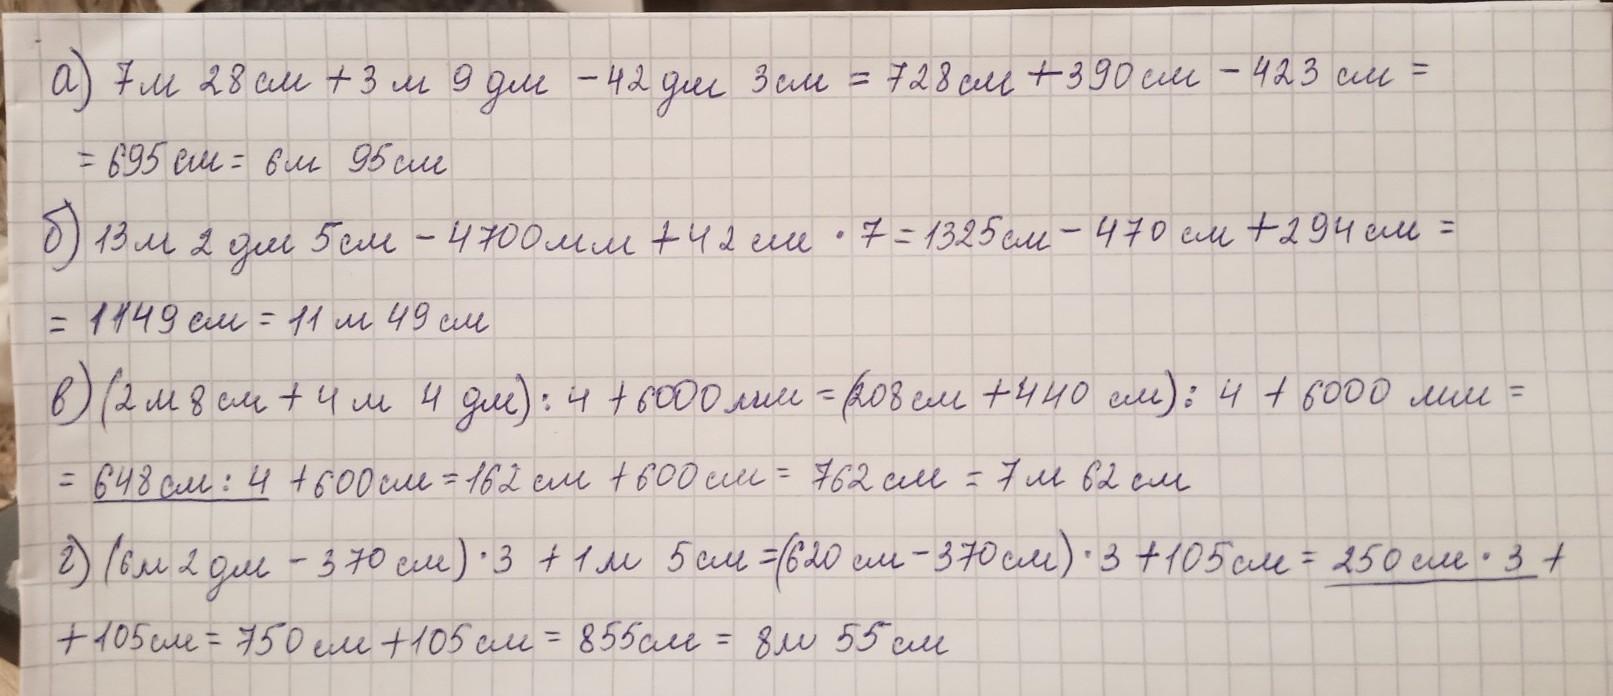 а) 7м 28см + 3м 9дм - 42дм 3см = 728см + 390см - 423см =
= 695см = 6м 95см
б) 13м 2дм 5см - 4700мм + 42см · 7 = 1325см - 470см + 294см =
= 1149см = 11м 49см
в) (2м 8см + 4м 4дм) : 4 + 6000мм = (208см + 440см) : 4 + 6000мм =
= 648см : 4 + 600см = 162см + 600см = 762см = 7м 62см
г) (6м 2дм - 370см) · 3 + 1м 5см = (620см - 370см) · 3 + 105см = 250см · 3 +
+ 105см = 750см + 105см = 855см = 8м 55см